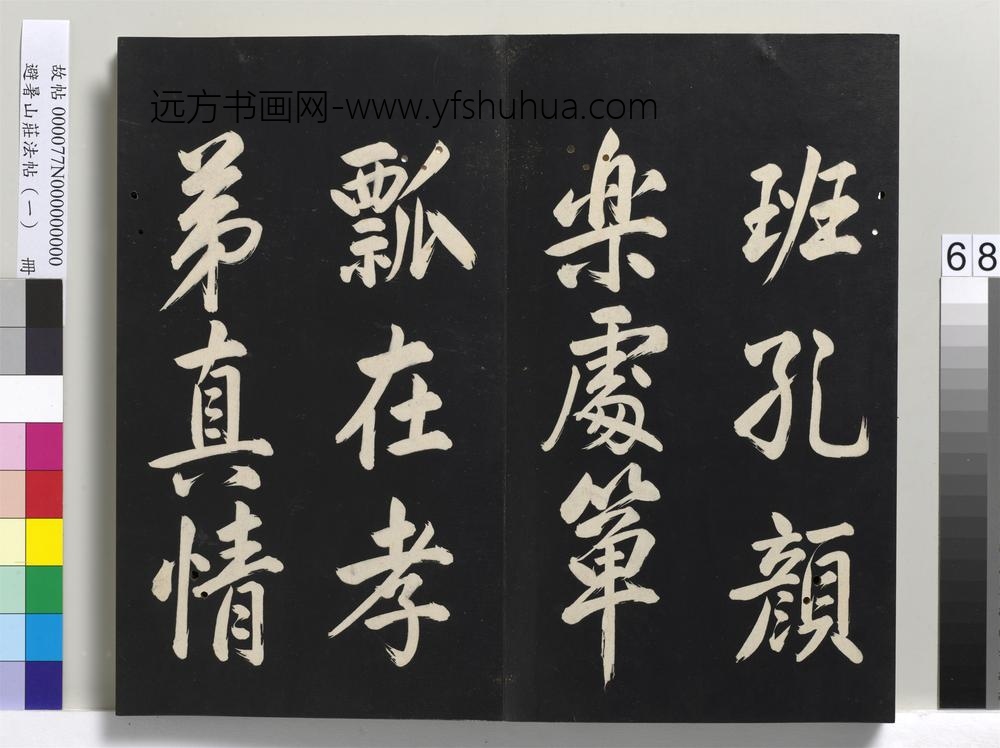 远方书画网-www.yfshuhua.com
班孔顔
樂處箪
瓢在孝
弟真情
故帖 000077N000000000
避暑山莊法帖（一） 冊
68